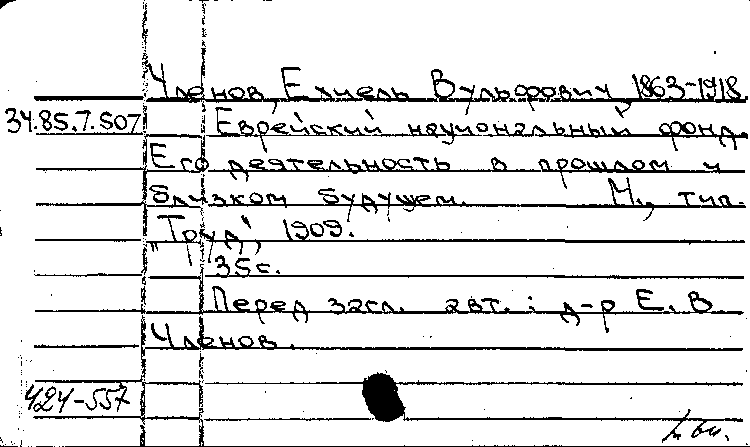 Членов, Ехиель Вульфович, 1863-1918.
34.85.7.507 Еврейский национальный фонд.
Его деятельность в прошлом и
близком будущем. М., тип.
„Труд", 1909.
35 с.
Перед загл. авт.: д-р Е. В.
Членов.
424-557